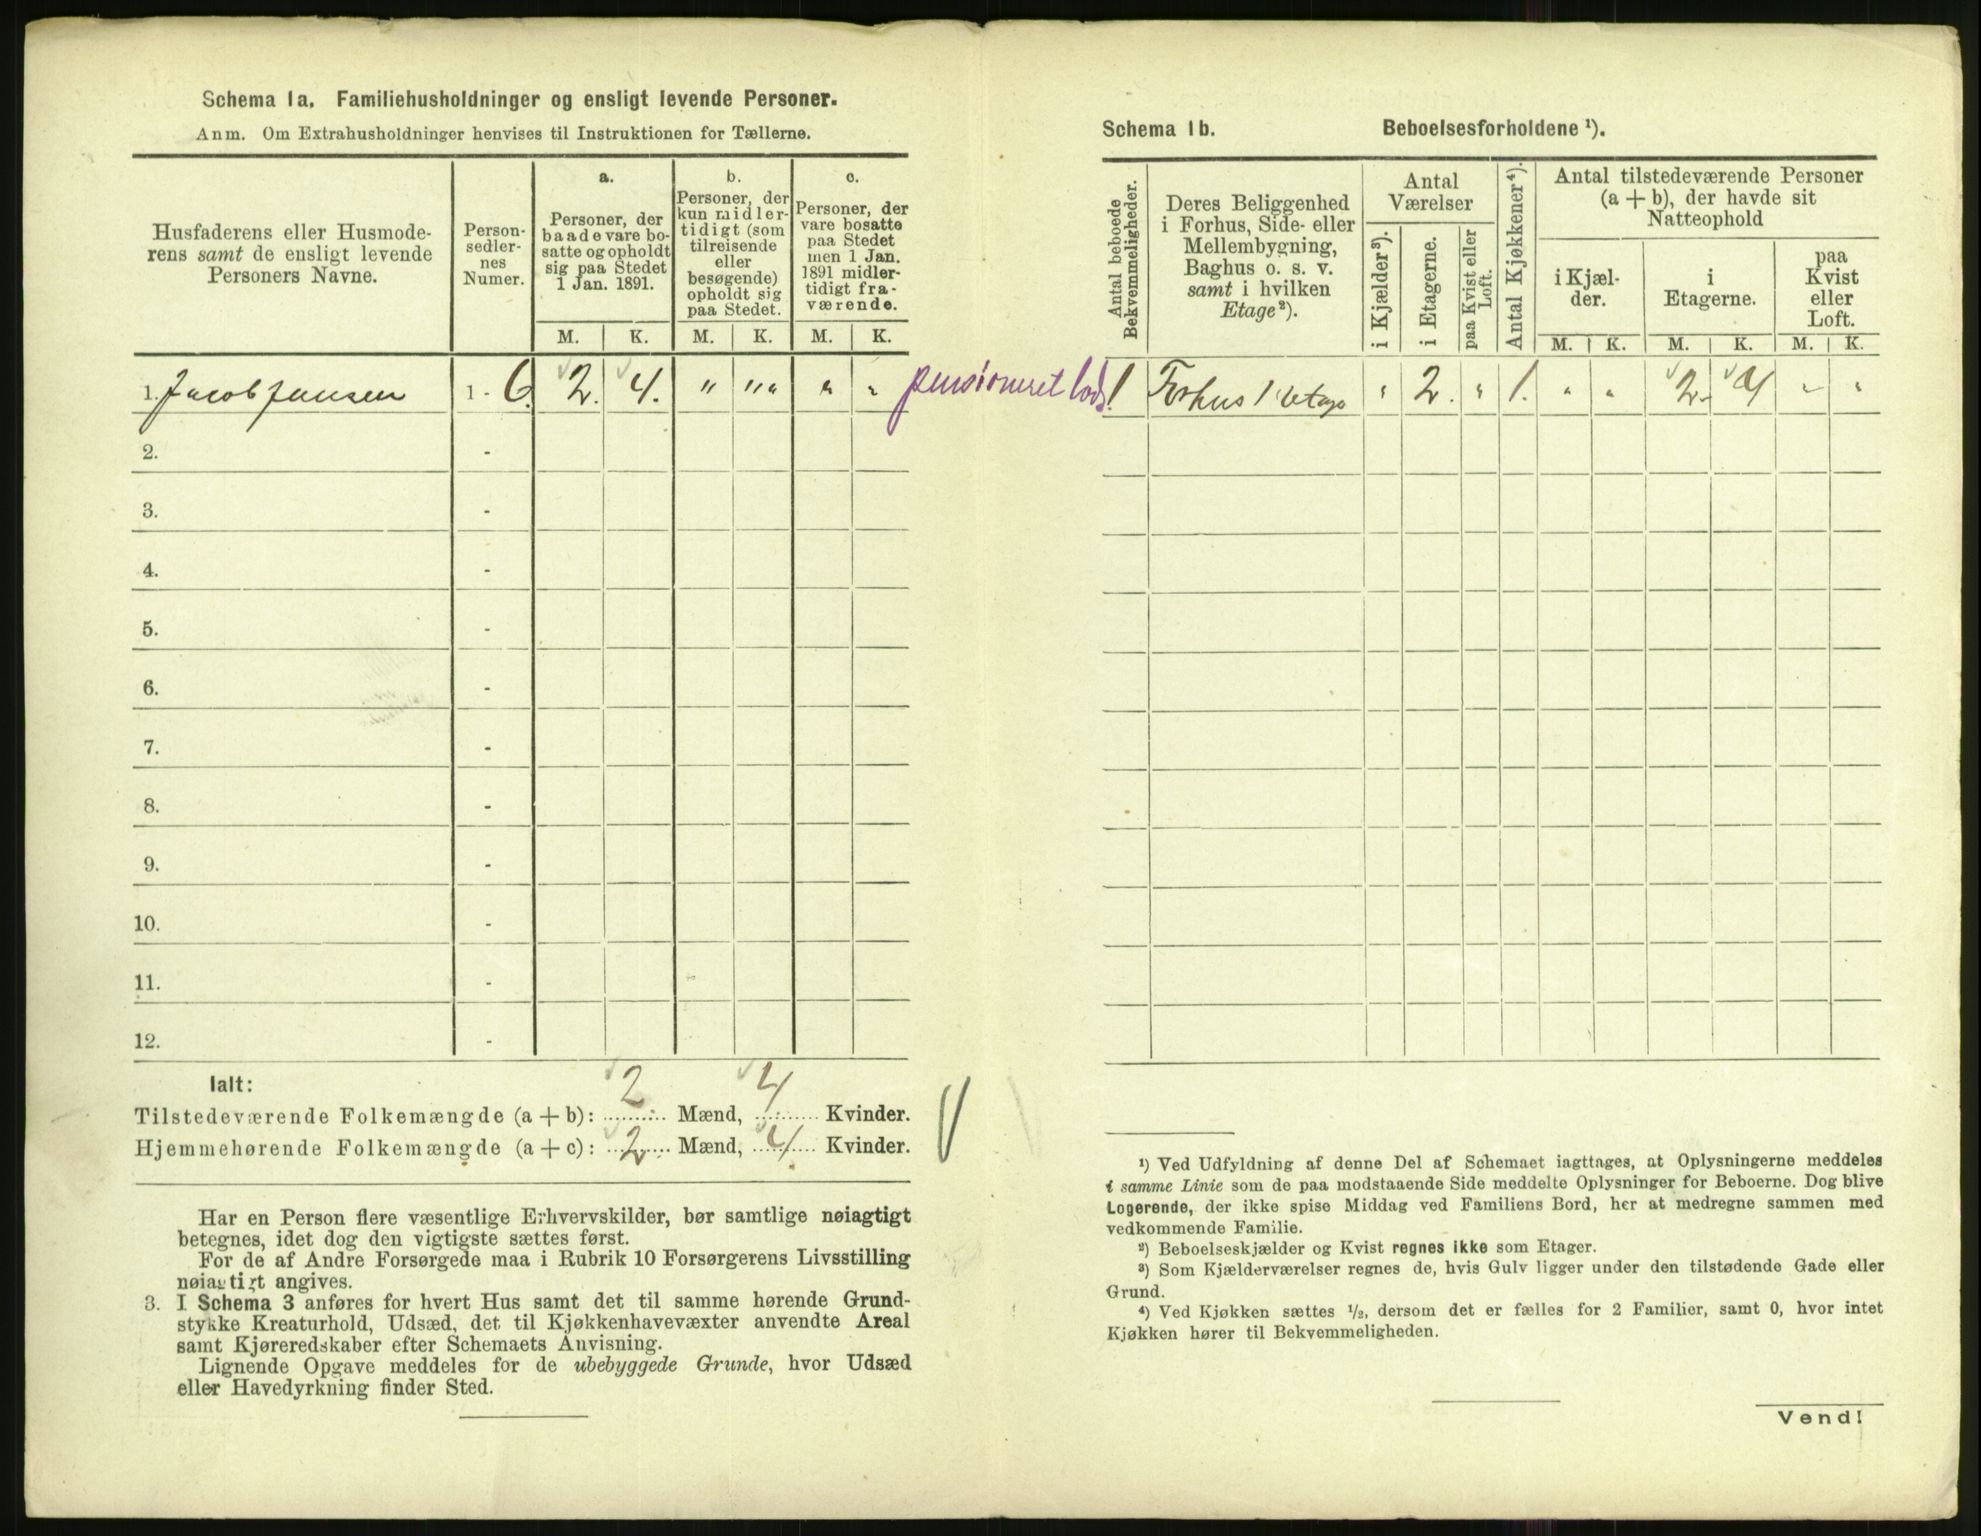 Schema 1a. Familiehusholdninger og ensligt levende Personer.
Anm. Om Extrahusholdninger henvises til Instruktionen for Tællerne.
Husfaderens eller Husmode-
rens samt de ensligt levende
Personers Navne.
Person-
sedler-
nes
Numer.
a.
Personer, der
baade vare bo-
satte og opholdt
sig paa Stedet
1 Jan. 1891.
b.
Personer, der
kun midler-
tidigt (som
tilreisende
eller
besøgende)
opholdt sig
paa Stedet.
c.
Personer, der
vare bosatte
paa Stedet
men 1 Jan.
1891 midler-
tidigt fra-
værende.
M. K. M. K. M. K.
1. Jacob Jansen 1 - 6. 2. 4. " "" " " pensioneret lods.
2. -
3. -
4. -
5. -
6. -
7. -
8. -
9. -
10. -
11. -
12. -
Ialt:
Tilstedeværende Folkemængde (a + b): 2 Mænd, 4 Kvinder.
Hjemmehørende Folkemængde (a + c): 2 Mænd, 4 Kvinder.
Har en Person flere væsentlige Erhvervskilder, bør samtlige nøiagtigt
betegnes, idet dog den vigtigste sættes først.
For de af Andre Forsørgede maa i Rubrik 10 Forsørgerens Livsstilling
nøiagtigt angives.
3. I Schema 3 anføres for hvert Hus samt det til samme hørende Grund-
stykke Kreaturhold, Udsæd, det til Kjøkkenhavevæxter anvendte Areal
samt Kjøreredskaber efter Schemaets Anvisning.
Lignende Opgave meddeles for de ubebyggede Grunde, hvor Udsæd
eller Havedyrkning finder Sted.
Schema 1b. Beboelsesforholdene ¹).
Antal beboede
Bekvemmeligheder.
Deres Beliggenhed
i Forhus, Side- eller
Mellembygning,
Baghus o. s. v.
samt i hvilken
Etage²).
Antal
Værelser
i Kjælder³).
i Etagerne.
paa Kvist eller
Loft.
Antal Kjøkkener⁴).
Antal tilstedeværende Personer
(a + b), der havde sit
Natteophold
i Kjæl-
der.
i
Etagerne.
paa
Kvist
eller
Loft.
M. K. M. K. M. K.
1 Forhus 1 etage " 2. " 1. " " 2. 4 " "
¹) Ved Udfyldning af denne Del af Schemaet iagttages, at Oplysningerne meddeles
i samme Linie som de paa modstaaende Side meddelte Oplysninger for Beboerne. Dog blive
Logerende, der ikke spise Middag ved Familiens Bord, her at medregne sammen med
vedkommende Familie.
²) Beboelseskjælder og Kvist regnes ikke som Etager.
³) Som Kjælderværelser regnes de, hvis Gulv ligger under den tilstødende Gade eller
Grund.
⁴) Ved Kjøkken sættes ½, dersom det er fælles for 2 Familier, samt 0, hvor intet
Kjøkken hører til Bekvemmeligheden.
Vend!